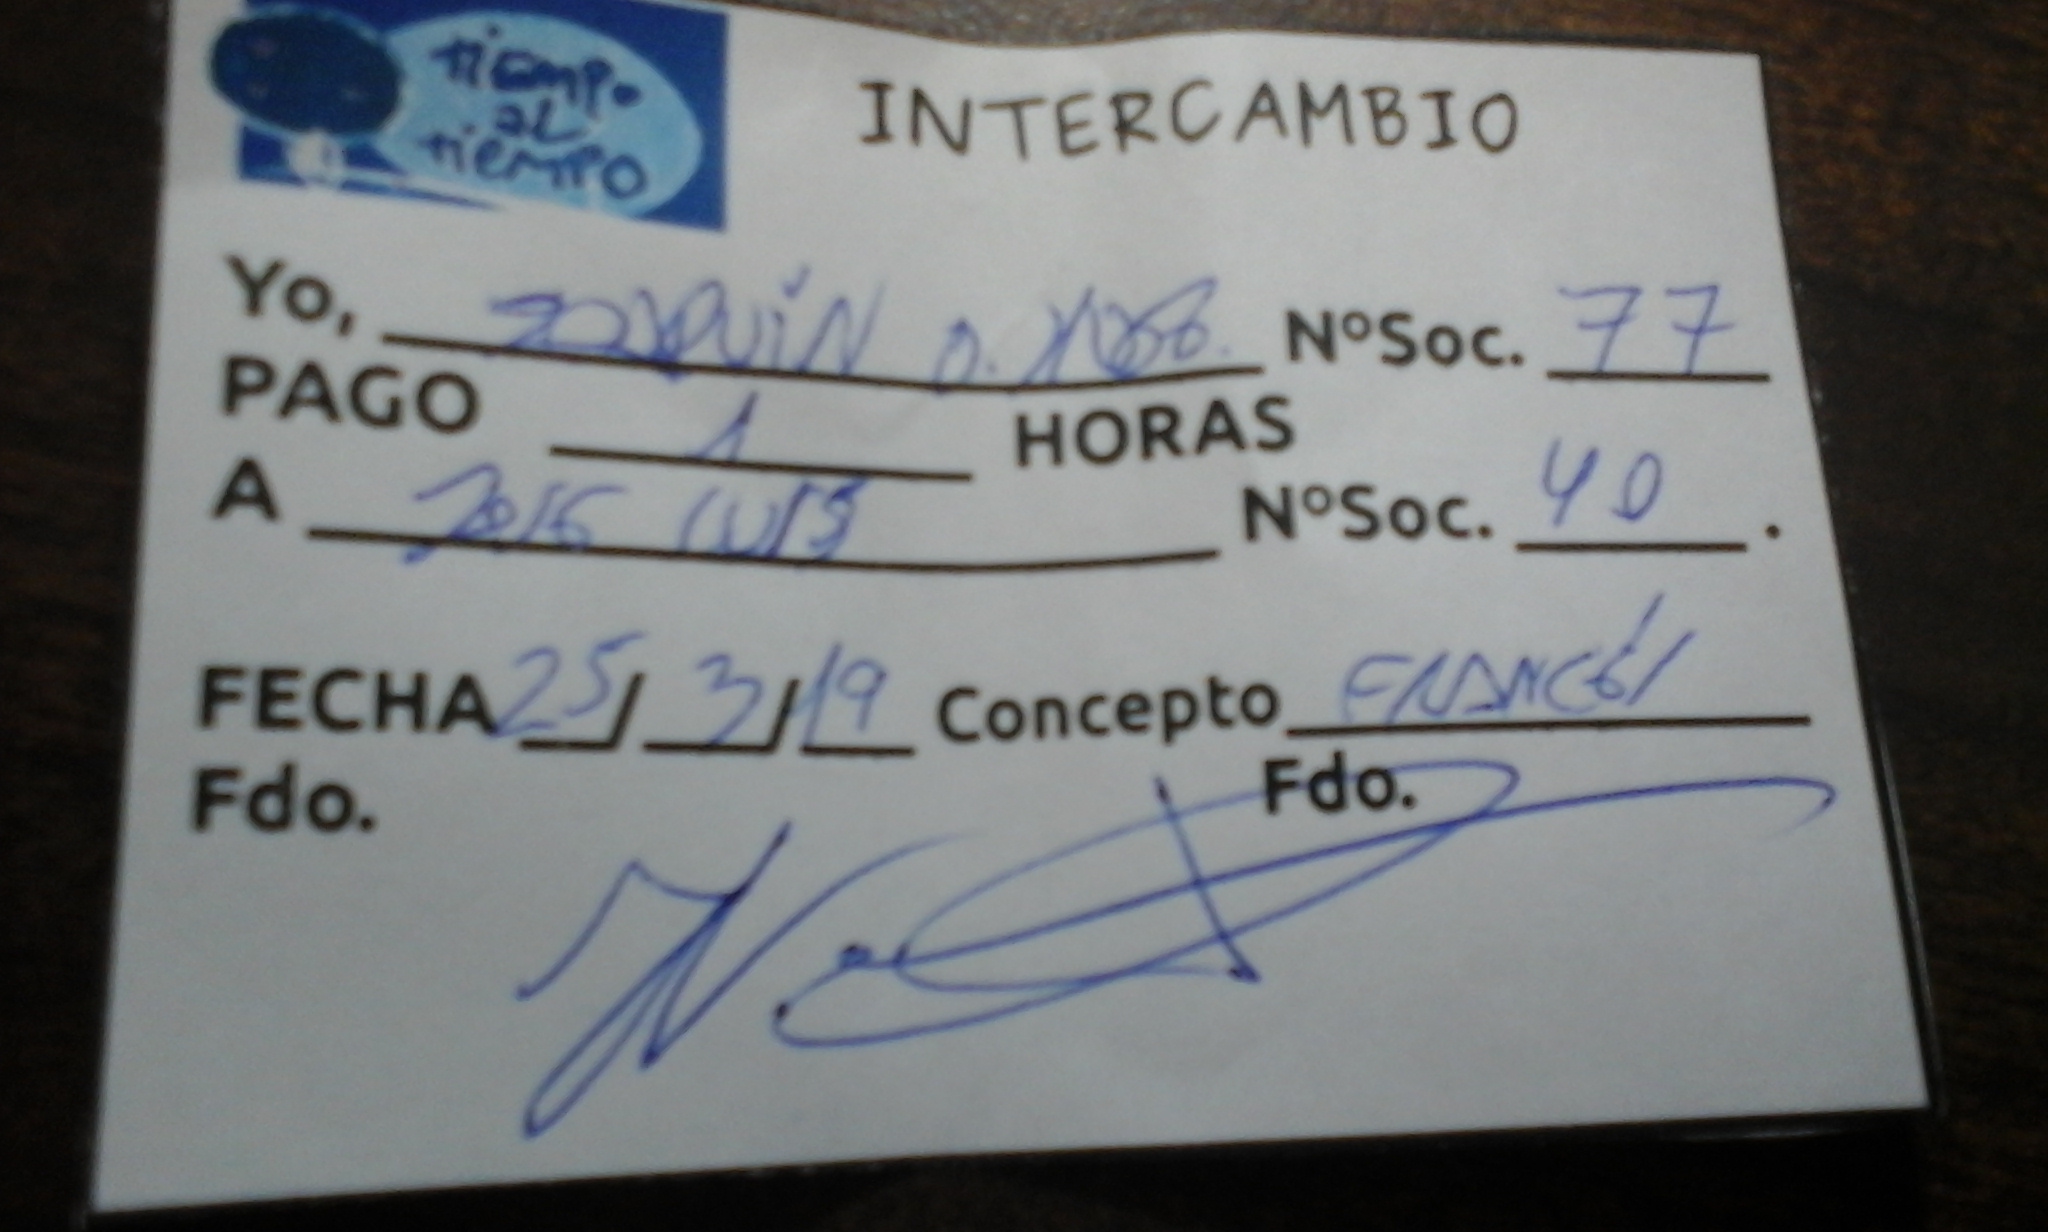 tiempo
al
tiempo
INTERCAMBIO
Yo, JOAQUÍN NºSoc. 77
PAGO 1 HORAS
A LUIS NºSoc. 40 .
FECHA 25/3/19 Concepto FRANCÉS
Fdo. Fdo.